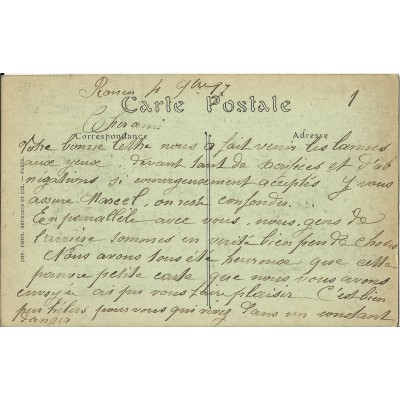 Rouen 4 9bre 17
1
Carte Postale
Cher ami
Correspondance
Adresse
Votre bonne lettre nous a fait venir les larmes
aux yeux. devant tant de sacrifices et d'ab
négations si courageusement acceptés. Je vous
assure Marcel, on reste confondus.
En parallèle avec vous, nous, gens de
l'arrière sommes en vérité bien peu de choses
Nous avons tous été heureux que cette
pauvre petite carte que nous vous avons
envoyée ait pu vous faire plaisir. C'est bien
peu hélas pour vous qui vivez dans un constant
danger
IMP. PHOT. NEURDEIN ET CIE. — PARIS